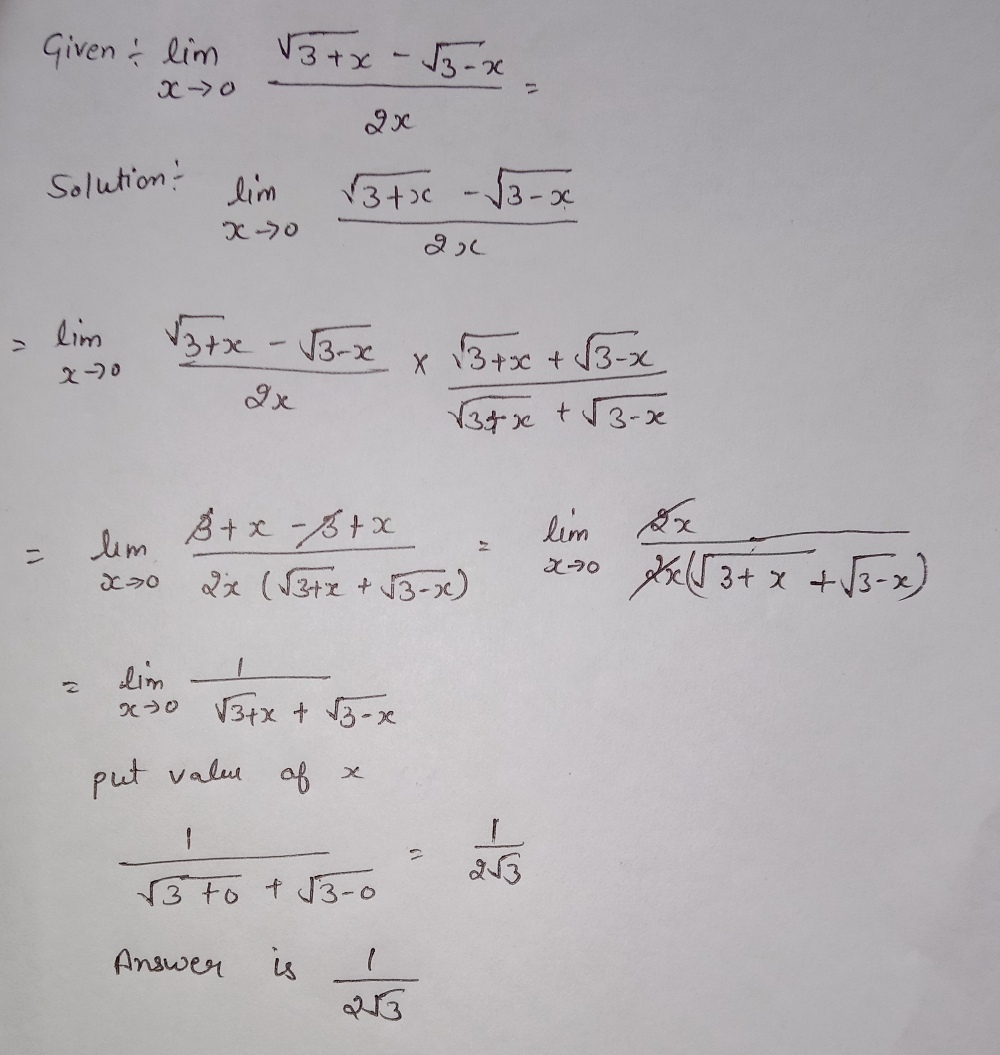 Given ÷ lim x→0 (√3+x - √3-x) / 2x =
Solution ÷ lim x→0 (√3+x - √3-x) / 2x
= lim x→0 (√3+x - √3-x) / 2x × (√3+x + √3-x) / (√3+x + √3-x)
= lim x→0 (3+x-3+x) / 2x (√3+x + √3-x) = lim x→0 2x / 2x(√3+x + √3-x)
= lim x→0 1 / (√3+x + √3-x)
put value of x
1 / (√3+0 + √3-0) = 1 / 2√3
Answer is 1 / 2√3